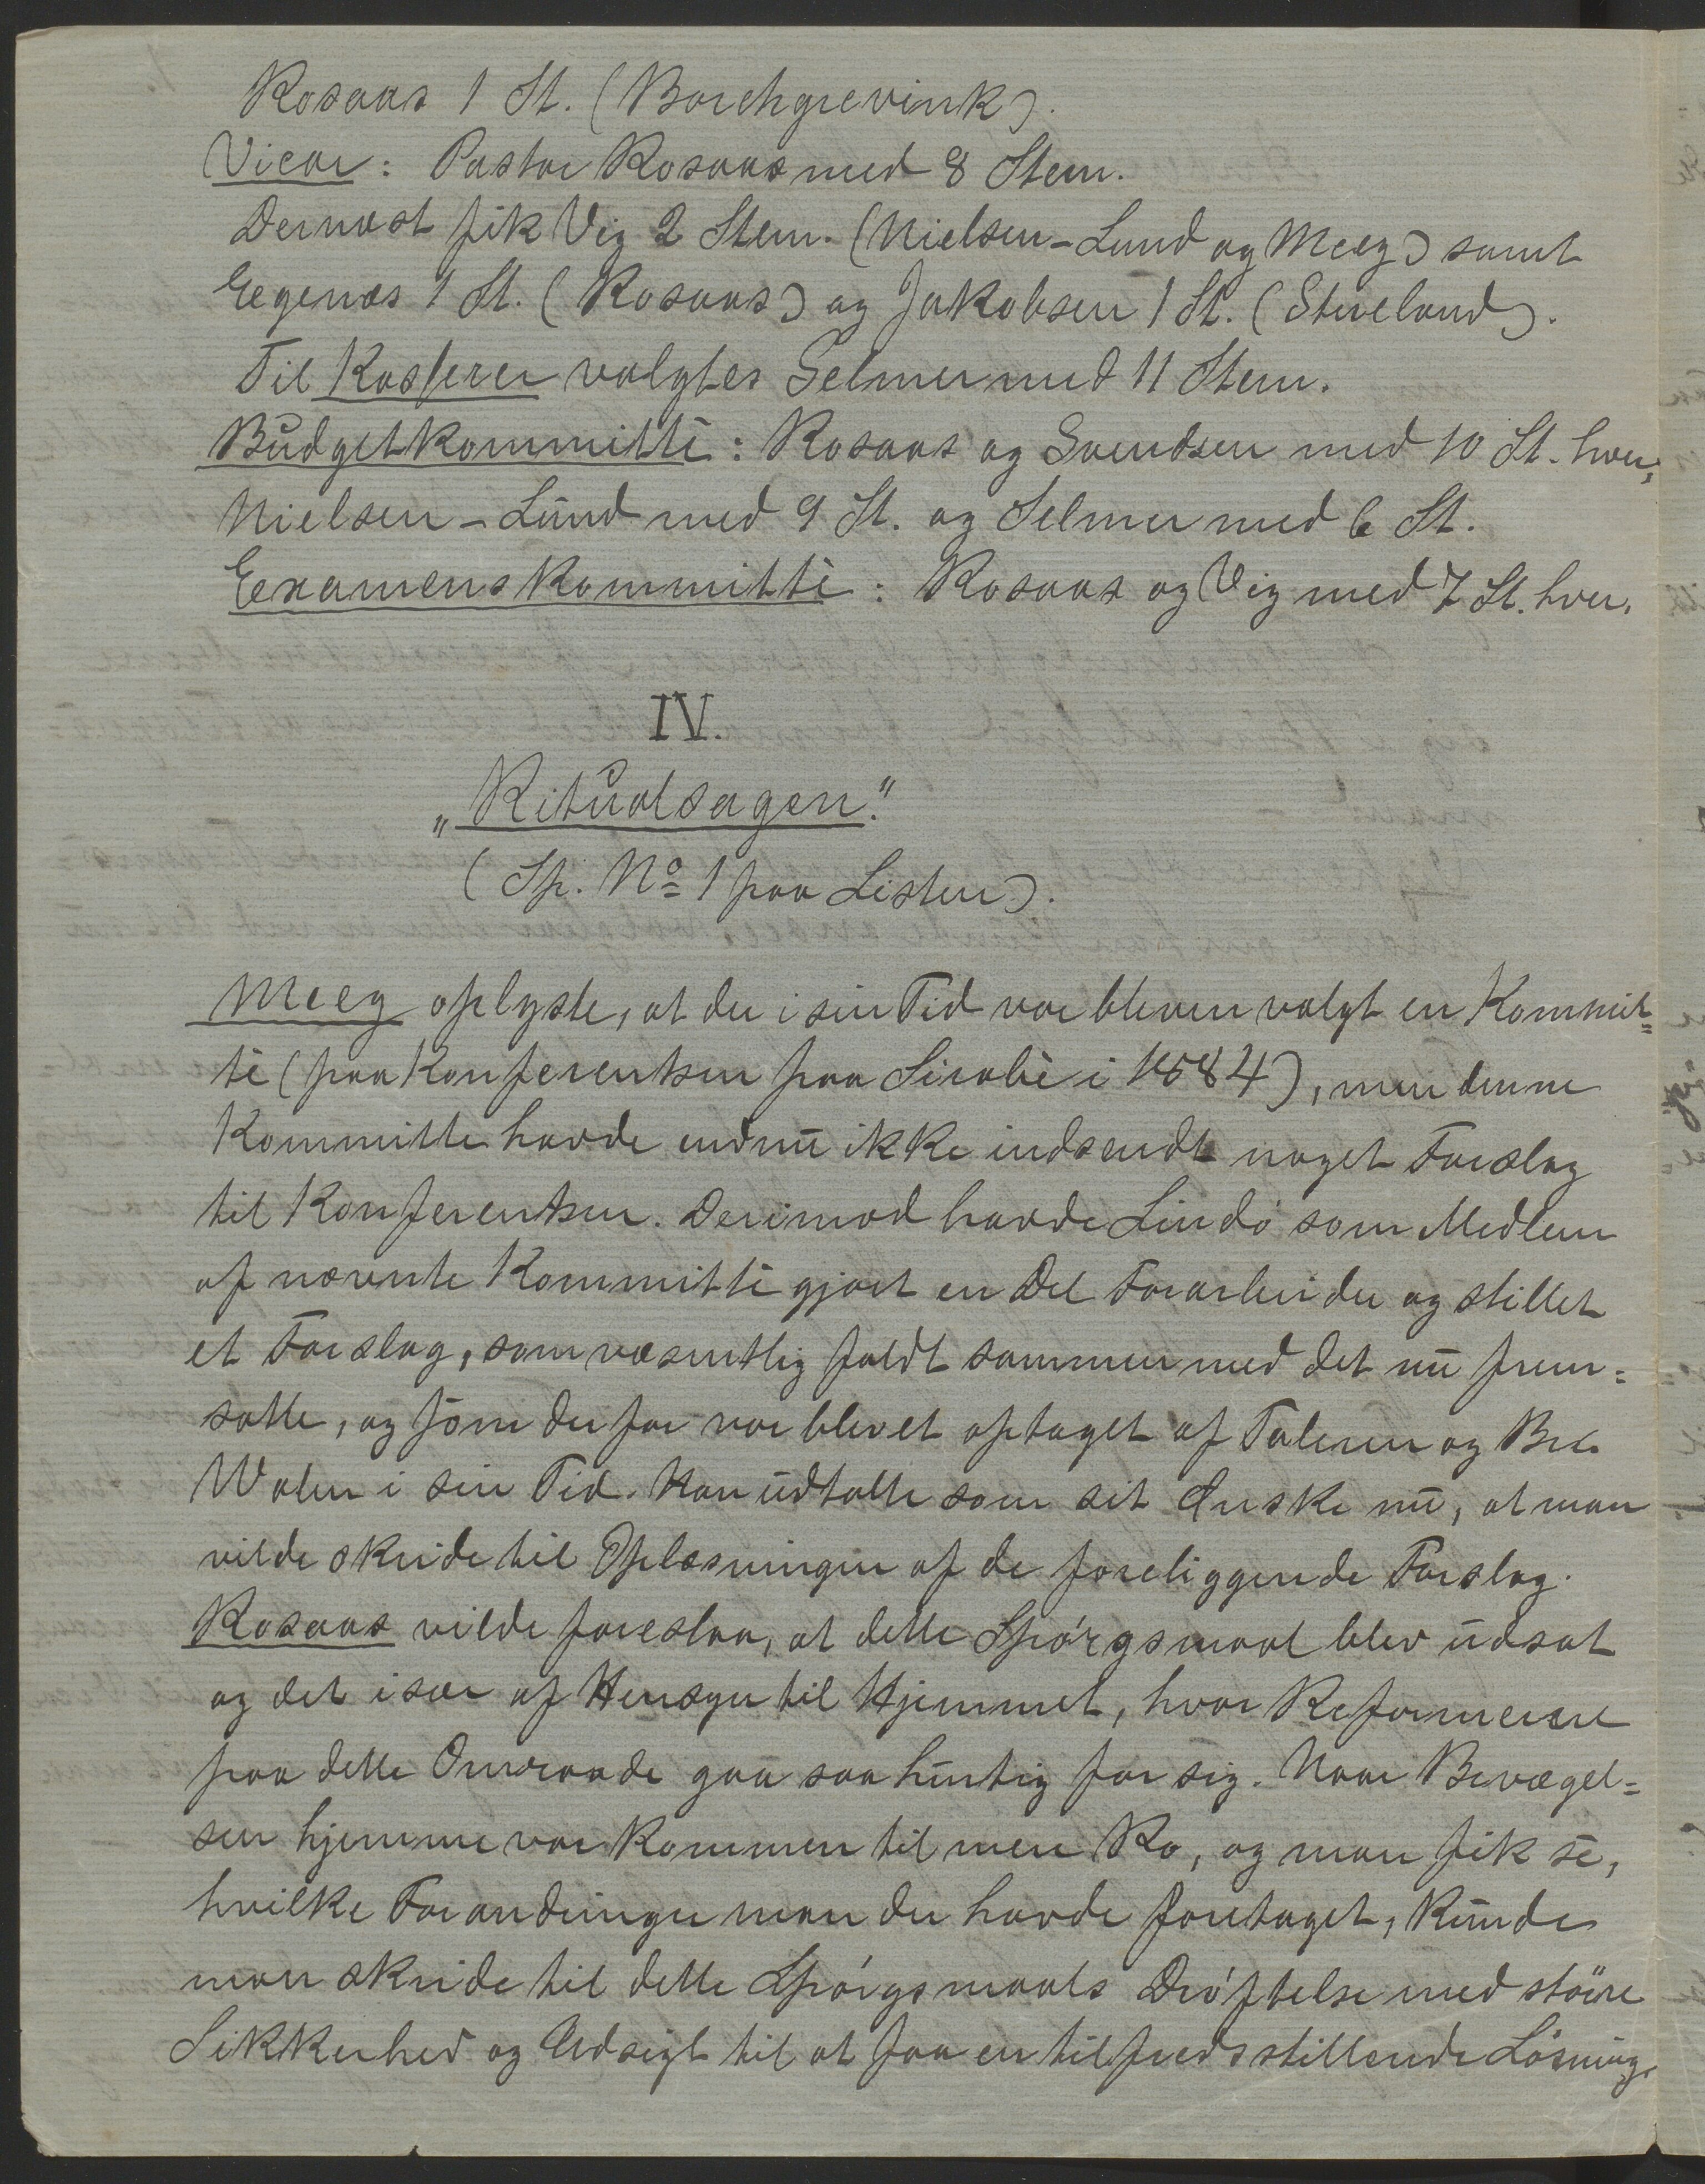 Rosaas 1 St. (Borchgrevink).
Vicar: Pastor Rosaas med 8 Stem.
Dernæst fik Vig 2 Stem. (Nielsen-Lund og Meeg) samt
Egenæs 1 St. (Rosaas) og Jakobsen 1 St. (Stueland).
Til Kasserer valgtes Selmer med 11 Stem.
Budgetkommitté: Rosaas og Svendsen med 10 St. hver,
Nielsen-Lund med 9 St. og Selmer med 6 St.
Examenskommitté: Rosaas og Vig med 7 St. hver.
IV.
„Ritualsagen."
(Sp. No 1 paa Listen).
Meeg oplyste, at der i sin Tid var bleven valgt en Kommit=
té (paa Konferentsen paa Sirabé i 1884), men denne
Kommitte havde endnu ikke indsendt noget Forslag
til Konferentsen. Derimod havde Lindø som Medlem
af nævnte Kommitté gjort en Del Forarbeider og stillet
et Forslag, som væsentlig faldt sammen med det nu frem=
satte, og som derfor var blevet optaget af Taleren og Br.
Walen i sin Tid. Han udtalte som sit Ønske nu, at man
vilde skride til Oplæsningen af de foreliggende Forslag.
Rosaas vilde foreslaa, at dette Spørgsmaal blev udsat
og det især af Hensyn til Hjemmet, hvor Reformerne
paa dette Omraade gaa saa hurtig for sig. Naar Bevægel=
sen hjemme var kommen til mere Ro, og man fik sé,
hvilke Forandringer man der havde foretaget, kunde
man skride til dette Spørgsmaals Drøftelse med større
Sikkerhed og Udsigt til at faa en tilfredsstillende Løsning.